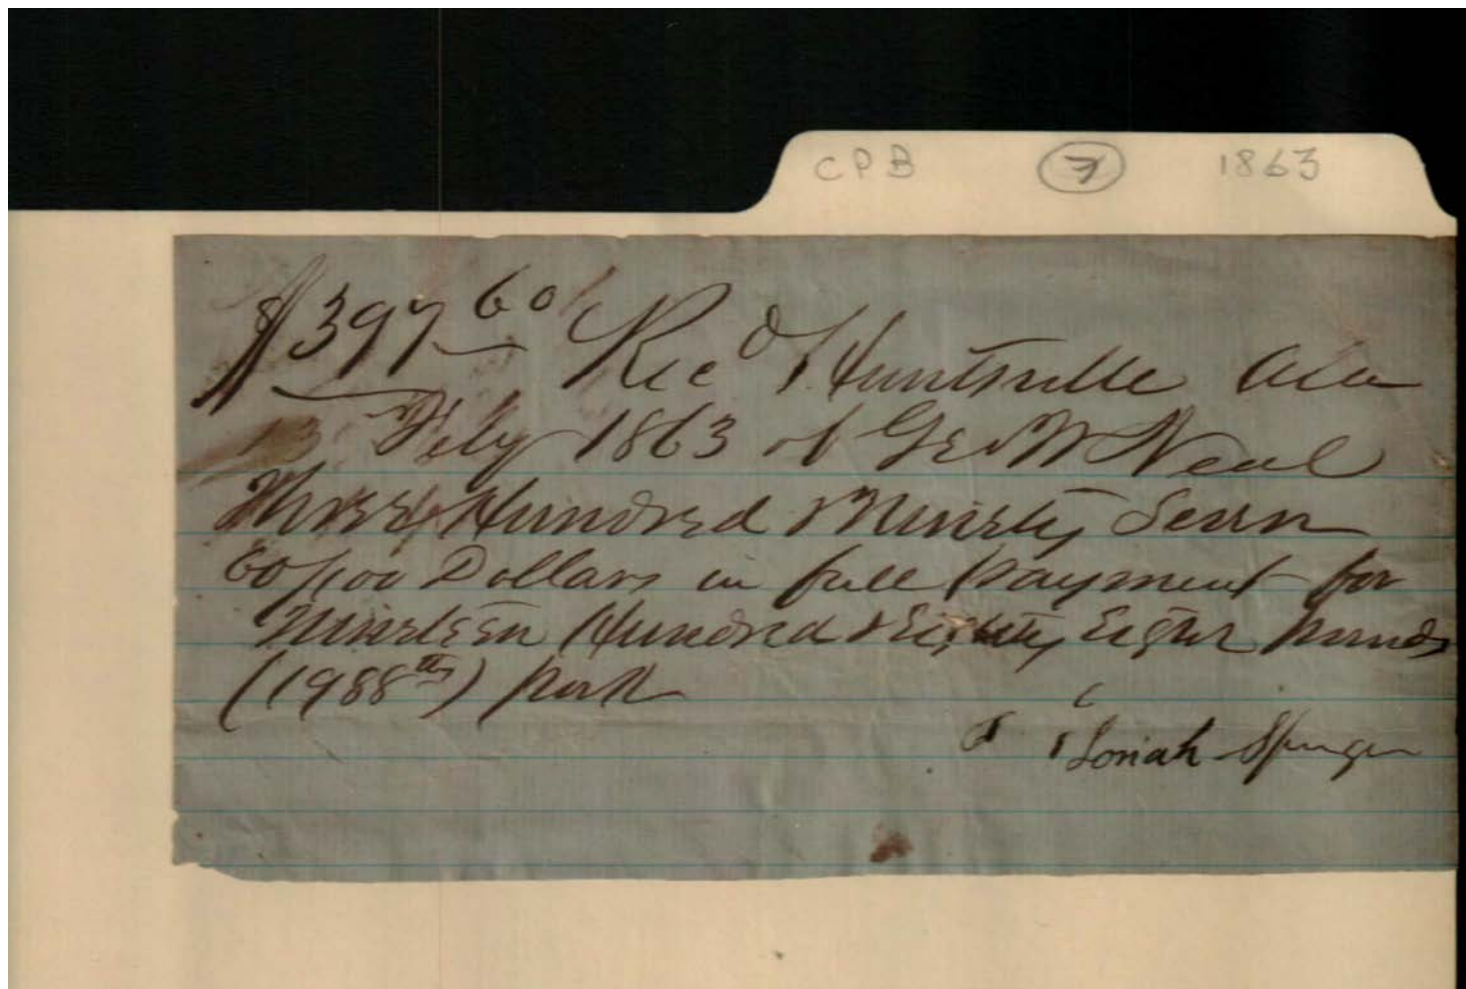 CPB 7 1863
$397 60 Recd Huntsville Ala
13 Feby 1863 of Geo W Neal
Three Hundred & Ninety Seven
60/100 Dollars in full payment for
Nineteen Hundred & Eighty Eight pounds
(1988 lbs) pork